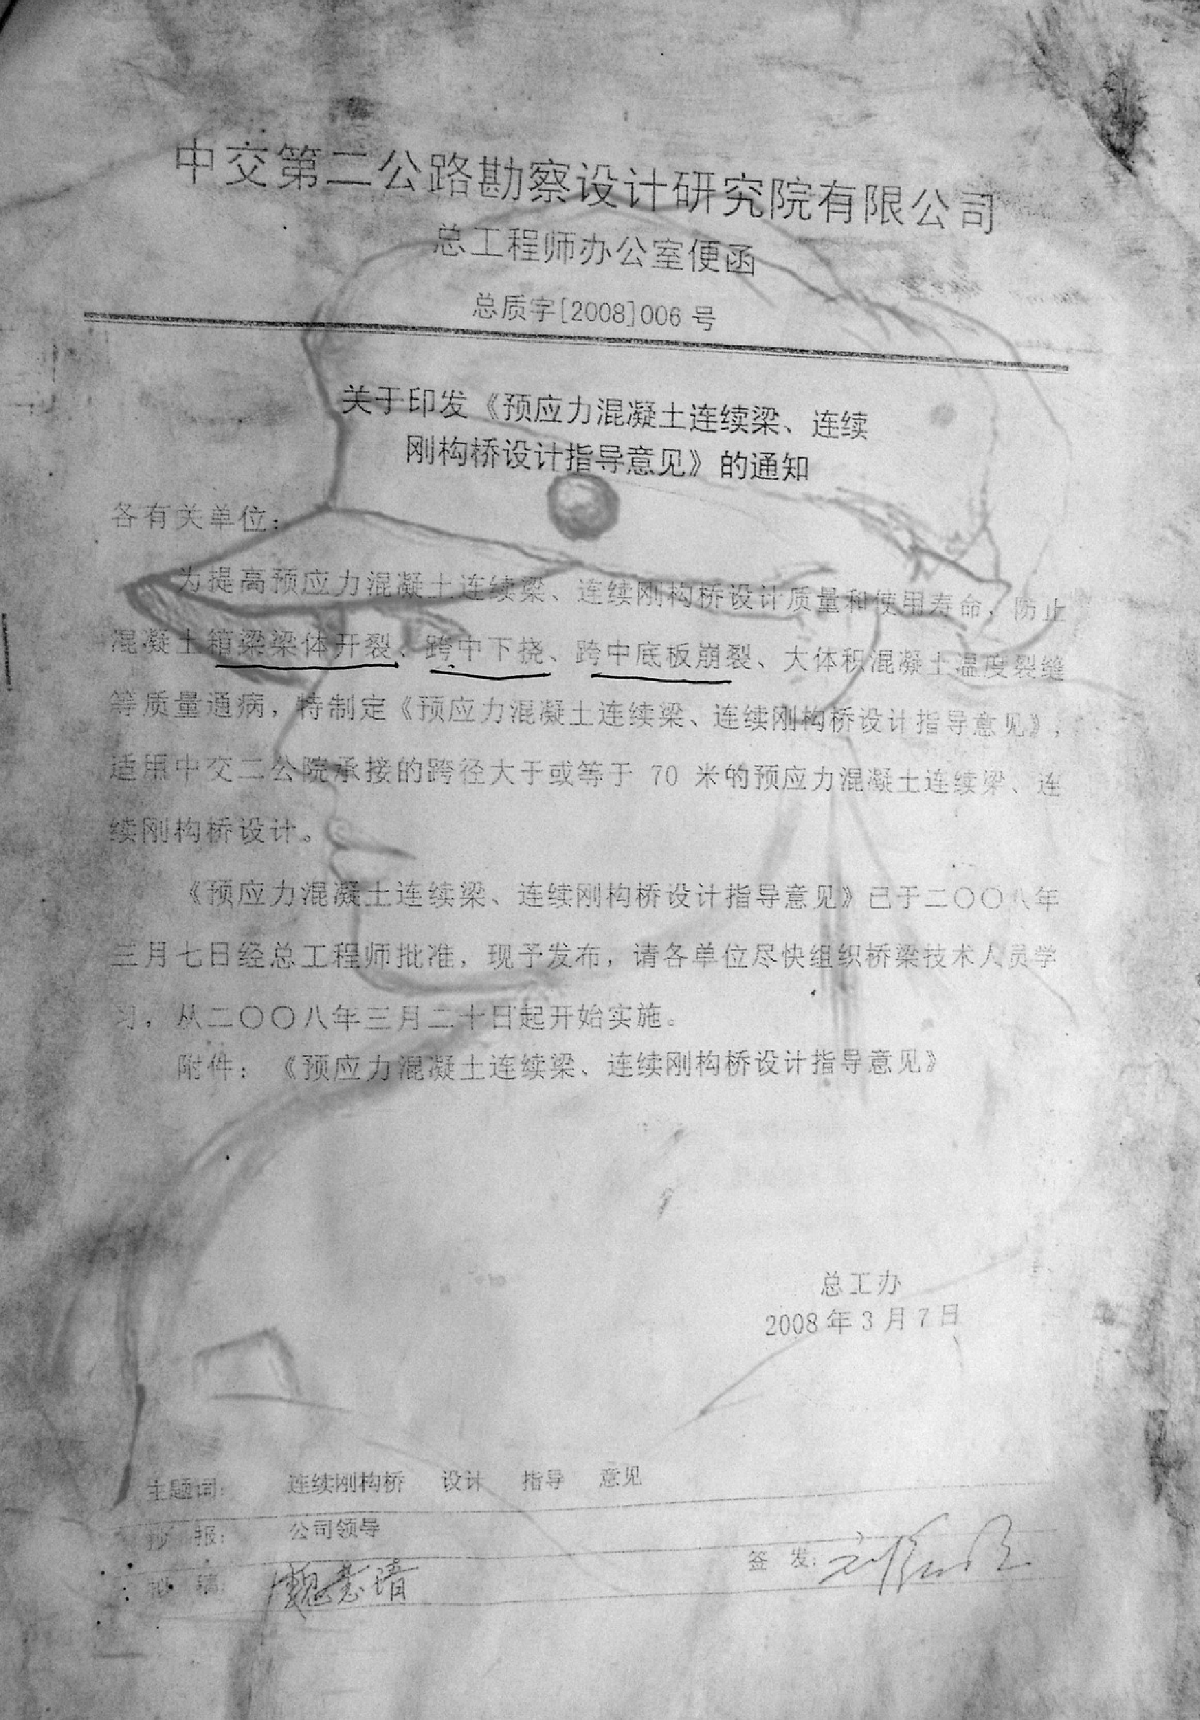 中交第二公路勘察设计研究院有限公司
总工程师办公室便函
总质字[2008]006 号
关于印发《预应力混凝土连续梁、连续
刚构桥设计指导意见》的通知
各有关单位：
为提高预应力混凝土连续梁、连续刚构桥设计质量和使用寿命，防止
混凝土箱梁梁体开裂、跨中下挠、跨中底板崩裂、大体积混凝土温度裂缝
等质量通病，特制定《预应力混凝土连续梁、连续刚构桥设计指导意见》，
适用中交二公院承接的跨径大于或等于 70 米的预应力混凝土连续梁、连
续刚构桥设计。
《预应力混凝土连续梁、连续刚构桥设计指导意见》已于二〇〇八年
三月七日经总工程师批准，现予发布，请各单位尽快组织桥梁技术人员学
习，从二〇〇八年三月二十日起开始实施。
附件：《预应力混凝土连续梁、连续刚构桥设计指导意见》
总工办
2008 年 3 月 7 日
主题词： 连续刚构桥 设计 指导 意见
抄 报： 公司领导
拟 稿： 签 发：